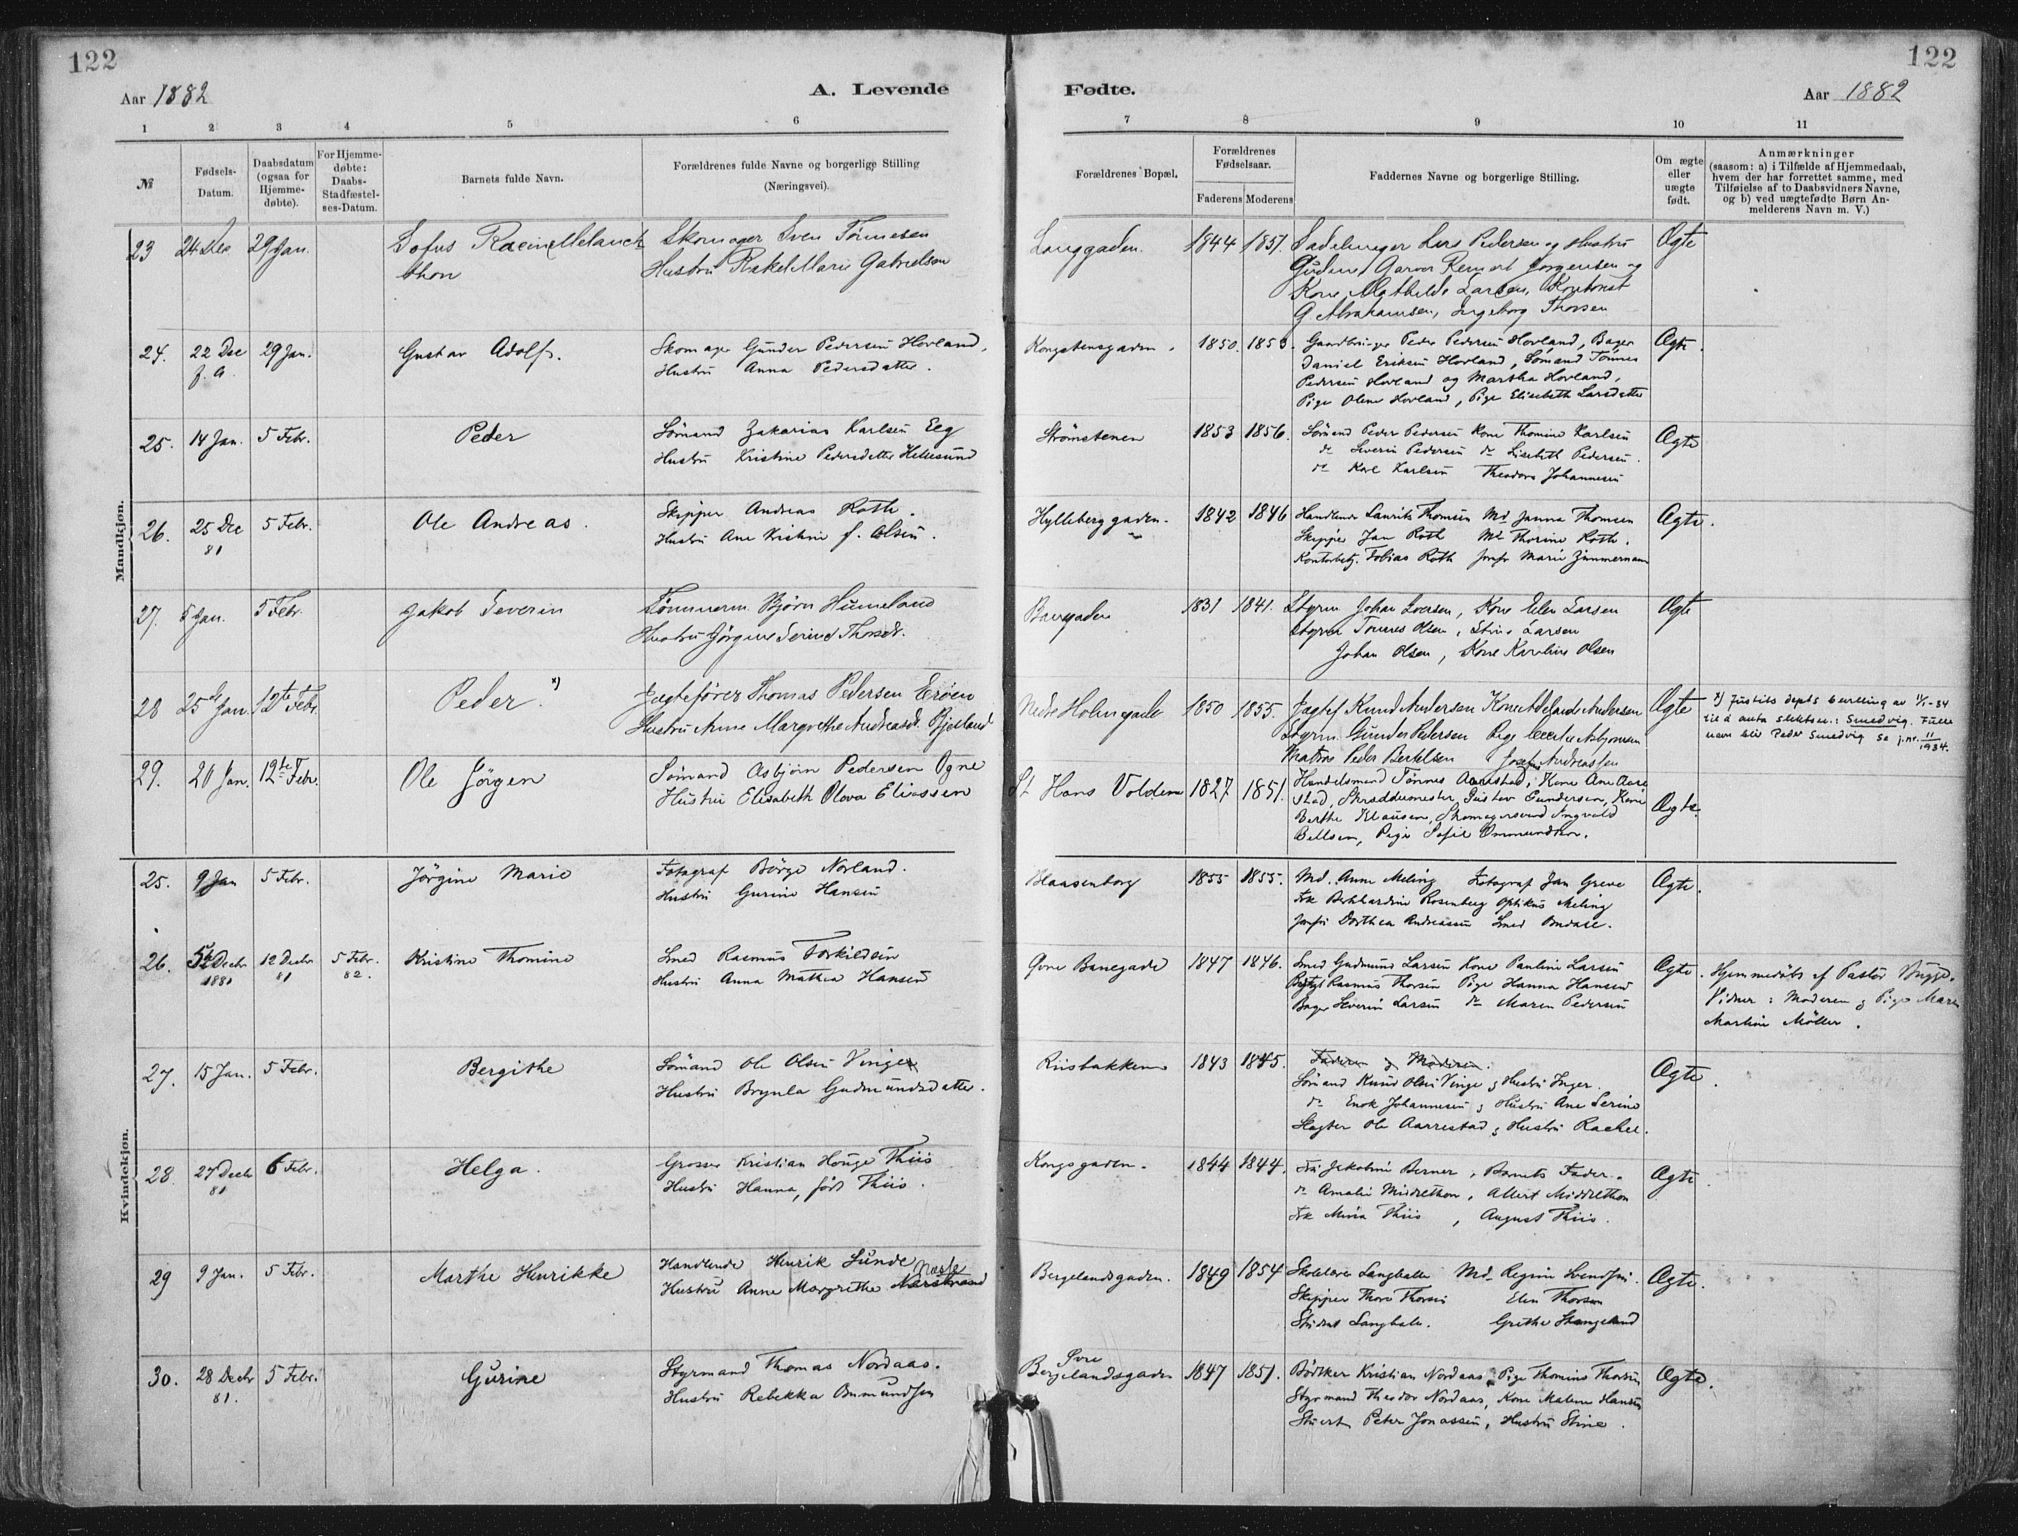 122
122
Aar 1882
A. Levende
Fødte.
Aar 1882
1 2 3 4 5 6 7 8 9 10 11
№
Fødsels-
Datum.
Daabsdatum
(ogsaa for
Hjemme-
døbte).
For Hjemme-
døbte:
Daabs-
Stadfæstel-
ses-Datum.
Barnets fulde Navn.
Forældrenes fulde Navne og borgerlige Stilling
(Næringsvei).
Forældrenes Bopæl.
Forældrenes
Fødselsaar.
Faderens Moderens
Faddernes Navne og borgerlige Stilling.
Om ægte
eller
uægte
født.
Anmærkninger
(saasom: a) i Tilfælde af Hjemmedaab,
hvem der har forrettet samme, med
Tilføielse af to Daabsvidners Navne,
og b) ved uægtefødte Børn An-
melderens Navn m. V.)
Mandkjøn.
23 24 Dec 29 Jan. Sofus Racine Melanch
thon
Skomager Sven Tönnesen
Hustru Rakel Marie Gabrielsen
Langgaden. 1844 1851.
Sadelmager Lars Pedersen og Hustru
Gurine, Garver Reinert Jørgensen og
Kone Mathilde Larsen, Kontorist
G Abrahamsen, Ingeborg Thorsen
Ægte
24. 22 Dec
f. A. 29 Jan. Gustav Adolf.
Skomager Gunder Pedersen Hovland,
Hustru Anna Pedersdatter.
Kongstensgaden. 1850. 1853.
Gaardbruger Peder Pedersen Hovland, Bager
Daniel Eriksen Hovland, Sømand Tönnes
Pedersen Hovland og Martha Hovland,
Pige Olene Hovland, Pige Elisabeth Larsdatter
Ægte.
25. 14 Jan. 5 Febr. Peder
Sømand Zakarias Karlsen Eeg
Hustru Kristine Pedersdatter Hellesund
Strømstenen 1853 1856.
Sømand Peder Pedersen Kone Thomine Karlsen
do Severin Pedersen do Lisebeth Pedersen.
do Karl Karlsen Theodora Johannesen
Ægte
26. 25 Dec
81 5 Febr. Ole Andreas.
Skipper Andreas Roth.
Hustru Ane Kristine f. Olsen.
Hylleberggaden. 1842 1846
Handlende Laurits Thomsen Md. Janna Thomsen
Skipper Jan Roth Md Thorine Roth.
Kontorbetj. Tobias Roth Jomfr Marie Zimmermann
Ægte.
27. 5 Jan. 5 Febr. Jakob Severin
Tømmerm. Bjørn Humeland
Hustru Jørgine Serine Thorsdt.
Banegaden 1831 1841.
Styrm. Johan Iversen, Kone Elen Larsen
Styrm Tönnes Olsen, Stine Larsen
Johan Olsen, Kone Karoline Olsen
Ægte
28 25de Jan. 12te Febr. Peder. x)
Jægtefører Thomas Pedersen Erøen
Hustru Anne Margrethe Andreasdt. Bjelland
Nedre Holmegade 1850 1855.
Jægtef Knud Andersen Kone Adelaide Andersen
Styrm. Gunder Pedersen Pige Asbjørnsen
Matros Peder Bertelsen Josef Andreassen
Ægte
x) Justits depts bevilling av 11/1-34
til å anta slektsn.: Smedvig. Fulle
navn blir Peder Smedvig Se j.nr. 11/1934.
29. 20 Jan. 12te Febr. Ole Jørgen
Sømand Asbjörn Pedersen Ogne
Hustru Elisabeth Olava Eliassen
St Hans Volden 1827 1851.
Handelsmand Tönnes Aarestad, Kone Ane Aare
stad, Skræddermester Gustav Gundersen, Kone
Berthe Klausen, Skomagersvend Ingvald
Bellsen, Pige Sofie Ommundsen.
Ægte.
Kvindekjøn.
25. 9 Jan 5 Febr. Jørgine Marie
Fotograf Börge Norland.
Hustru Gurine Hansen
Blaasenborg 1855 1855.
Md. Anne Meling Fotograf Jan Greve
Frk Berhhardine Rosenberg Optikus Meling
Jomfru Dorthea Andreassen Smed Omdale.
Ægte.
26. 5te Decbr
1881 12 Decbr
81 5 Febr.
82. Kristine Thomine
Smed Rasmus Torkildsen
Hustru Anna Mathea Hansen
Øvre Banegade 1847 1846.
Smed Gudmund Larsen Kone Pauline Larsen
Rasmus Thorsen Pige Hanna Hansen
Bager Severin Larsen do Maren Pedersen
Ægte.
Hjemmedøbt af Pastor Bugge.
Vidner: Moderen og Pige Maren
Martine Möller.
27. 15 Jan. 5 Febr. Bergithe
Sømand Ole Olsen Vinge
Hustru Brynla Gudmundsdatter.
Riisbakken 1843 1845.
Faderen og Moderen.
Sømand Knud Olsen Vinge og Hustru Inger.
do Enok Johannesen og Hustru Ane Serine
Slagter Ole Aarrestad og Hustru Rachel.
Ægte.
28. 27 Decbr
81 6 Febr. Helga.
Grosser Kristian Houge Thiis
Hustru Hanna, født Thiis.
Kongsgaden. 1844 1844.
Fru Jakobine Berner, Barnets Fader.
do Amalie Middelthon, Albert Middelthon
Frk Mina Thiis, August Thiis.
Ægte.
29 9 Jan. 5 Febr. Marthe Henrikke
Handlende Henrik Sunde
Hustru Anne Margrethe Narstrand
Bergelandsgaden. 1849 1854
Skolelærer Langballe Md. Regine Svendsen.
Skipper Thore Thorsen Elen Thorsen
Student Langballe. Grethe Stangeland
Ægte.
30. 28 Decbr
81. 5 Febr. Gurine
Styrmand Thomas Nordaas.
Hustru Rebekka Ommundsen
Øvre
Bergelandsgaden 1847 1851.
Bødtker Kristian Nordaas Pige Thomine Thorsen
Styrmand Theodor Nordaas, Kone Malene Hansen
Stuert Peter Jonassen, Hustru Stine.
Ægte.